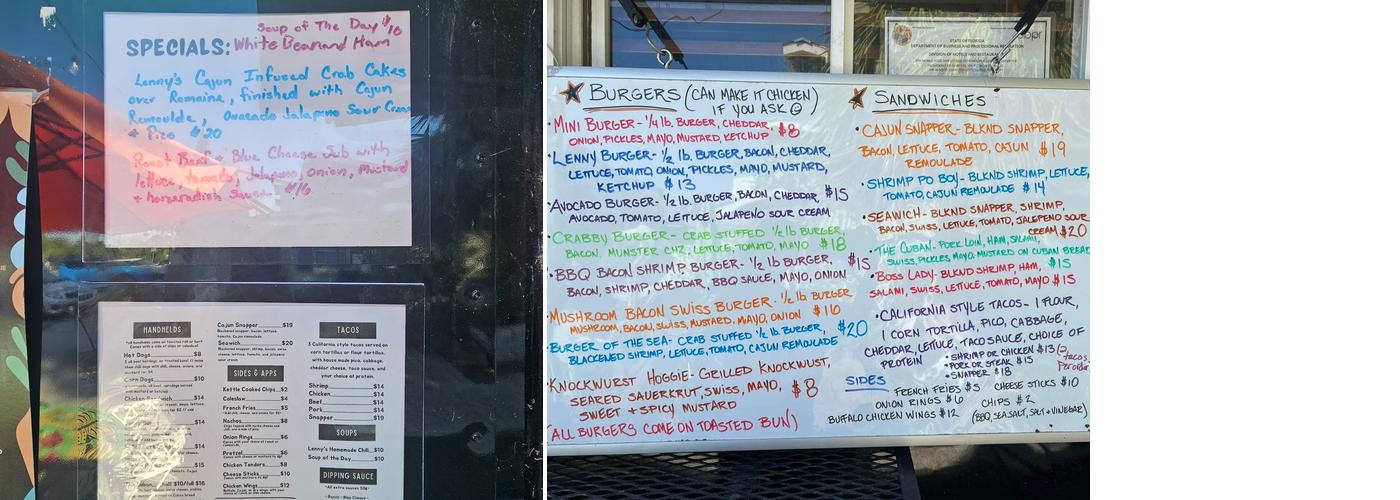 Soup of The Day $10
SPECIALS: White Bean and Ham
Lenny's Cajun Infused Crab Cakes
over Romaine, finished with Cajun
Remoulde, Avacado Jalapeno Sour Cream
+ Pico $20
Roast Beef + Blue Cheese Sub with
lettuce, tomato, Jalapeno, Onion, Mustard
+ horseradish Sauce $16
HANDHELDS
Hot Dogs $8
Corn Dogs $10
Cajun Snapper $19
Seawich $20
SIDES & APPS
Kettle Cooked Chips $2
Coleslaw $4
French Fries $5
Nachos $8
Onion Rings $6
Pretzel $6
Chicken Tanders $8
Cheese Sticks $10
Chicken Wings $12
TACOS
3 California style tacos served on
corn tortillas or flour tortillas.
with house made pico, cabbage,
cheddar cheese, taco sauce, and
your choice of protein.
Shrimp $14
Chicken $14
Beef $14
Pork $14
Snapper $19
SOUPS
Lenny's Homemade Chili $10
Soup of the Day $10
DIPPING SAUCE
STATE OF FLORIDA
DEPARTMENT OF BUSINESS AND PROFESSIONAL REGULATION
DIVISION OF HOTELS AND RESTAURANTS
BURGERS (CAN MAKE IT CHICKEN)
IF YOU ASK
• MINI BURGER - 1/4 lb. BURGER, CHEDDAR, $8
ONION, PICKLES, MAYO, MUSTARD, KETCHUP
• LENNY BURGER - 1/2 lb. BURGER, BACON, CHEDDAR,
LETTUCE, TOMATO, ONION, PICKLES, MAYO, MUSTARD,
KETCHUP $13
• AVOCADO BURGER - 1/2 lb. BURGER, BACON, CHEDDAR, $15
AVOCADO, TOMATO, LETTUCE, JALAPEÑO SOUR CREAM
• CRABBY BURGER - CRAB STUFFED 1/2 lb BURGER,
BACON, MUNSTER CHZ, LETTUCE, TOMATO, MAYO $18
• BBQ BACON SHRIMP BURGER - 1/2 lb BURGER, $15
BACON, SHRIMP, CHEDDAR, BBQ SAUCE, MAYO, ONION
• MUSHROOM BACON SWISS BURGER - 1/2 lb BURGER
MUSHROOM, BACON, SWISS, MUSTARD, MAYO, ONION $16
• BURGER OF THE SEA - CRAB STUFFED 1/2 lb BURGER, $20
BLACKENED SHRIMP, LETTUCE, TOMATO, CAJUN REMOULADE
• KNOCKWURST HOGGIE - GRILLED KNOCKWUST,
SEARED SAUERKRUT, SWISS, MAYO, $8
SWEET + SPICY MUSTARD
(ALL BURGERS COME ON TOASTED BUN)
SANDWICHES
• CAJUN SNAPPER - BLKND SNAPPER,
BACON, LETTUCE, TOMATO, CAJUN $19
REMOULADE
• SHRIMP PO BOY - BLKND SHRIMP, LETTUCE,
TOMATO, CAJUN REMOULADE $14
• SEAWICH - BLKND SNAPPER, SHRIMP,
BACON, SWISS, LETTUCE, TOMATO, JALEPENO SOUR
CREAM $20
• THE CUBAN - PORK LOIN, HAM, SALAMI,
SWISS, PICKLES, MAYO, MUSTARD ON CUBAN BREAD
$15
• BOSS LADY - BLKND SHRIMP, HAM,
SALAMI, SWISS, LETTUCE, TOMATO, MAYO $15
• CALIFORNIA STYLE TACOS - 1 FLOUR,
1 CORN TORTILLA, PICO, CABBAGE,
CHEDDAR, LETTUCE, TACO SAUCE, CHOICE OF
PROTEIN • SHRIMP OR CHICKEN $13
• PORK OR STEAK $15
• SNAPPER $18
(2 tacos
SIDES
FRENCH FRIES $5 CHEESE STICKS $10
ONION RINGS $6 CHIPS $2
BUFFALO CHICKEN WINGS $12 (BBQ, SEA SALT, SALT + VINEGAR)